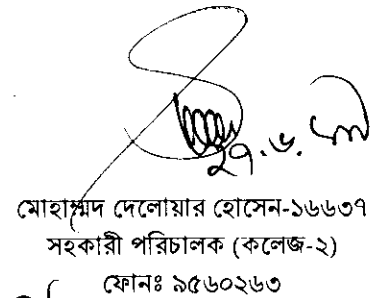 ২৭.৬.
মোহাম্মদ দেলোয়ার হোসেন-১৬৬৩৭
সহকারী পরিচালক (কলেজ-২)
ফোনঃ ৯৫৬০২৬৩